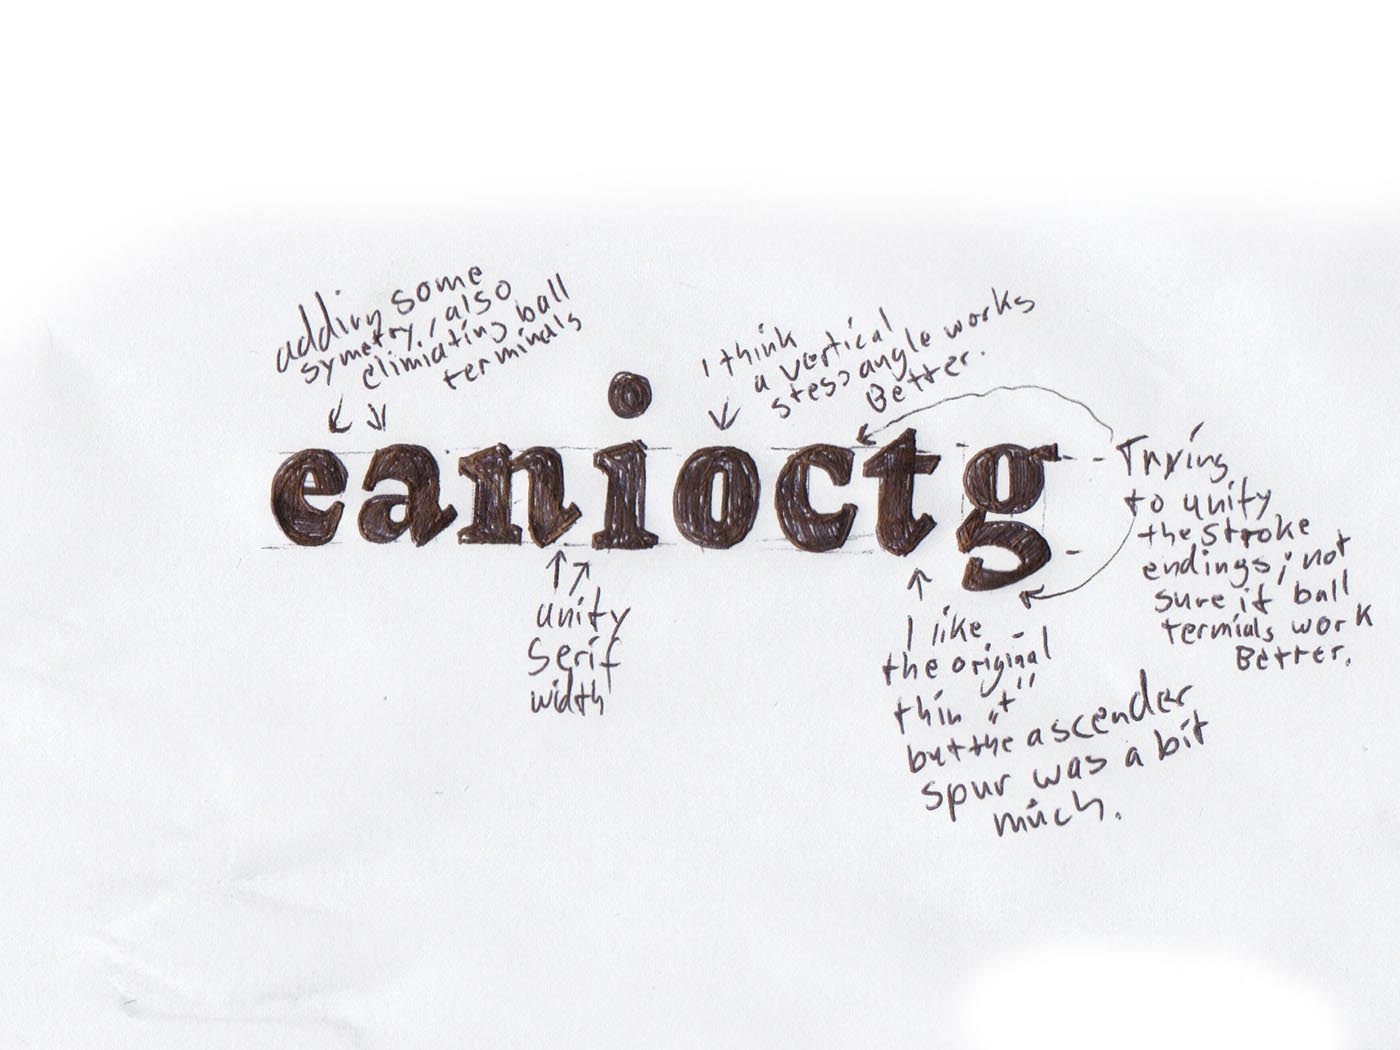 adding some
symetry, also
elimiating ball
terminals
I think
a vertical
stess angle works
Better.
eanioctg
Trying
to unify
the stroke
endings; not
sure if ball
termials work
Better.
unify
serif
width
I like
the original
thin "t"
but the ascender
spur was a bit
much.